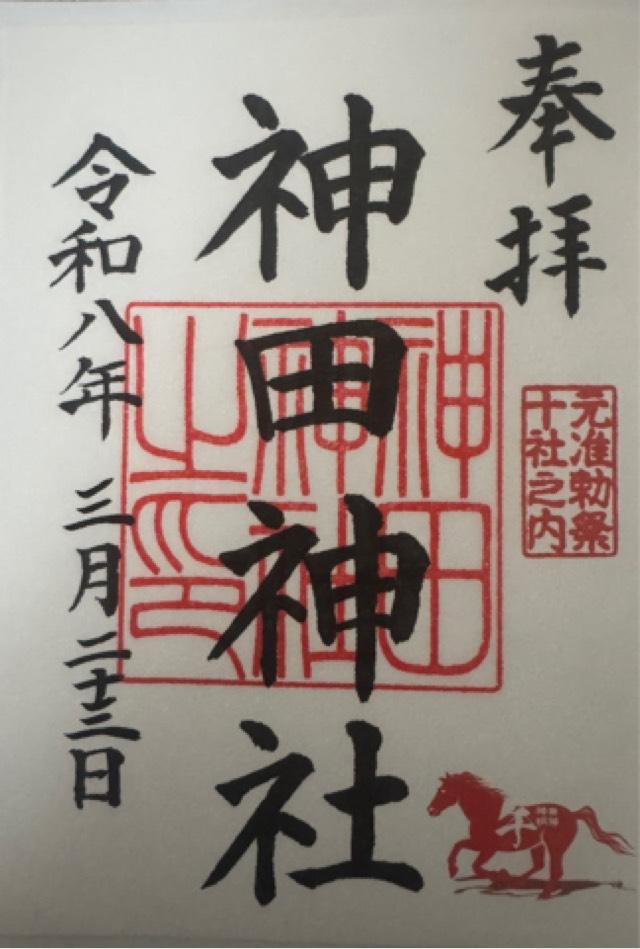 奉拝
元准勅祭
十社之内
神田神社
神田
神社
之印
令和八年 三月二十二日